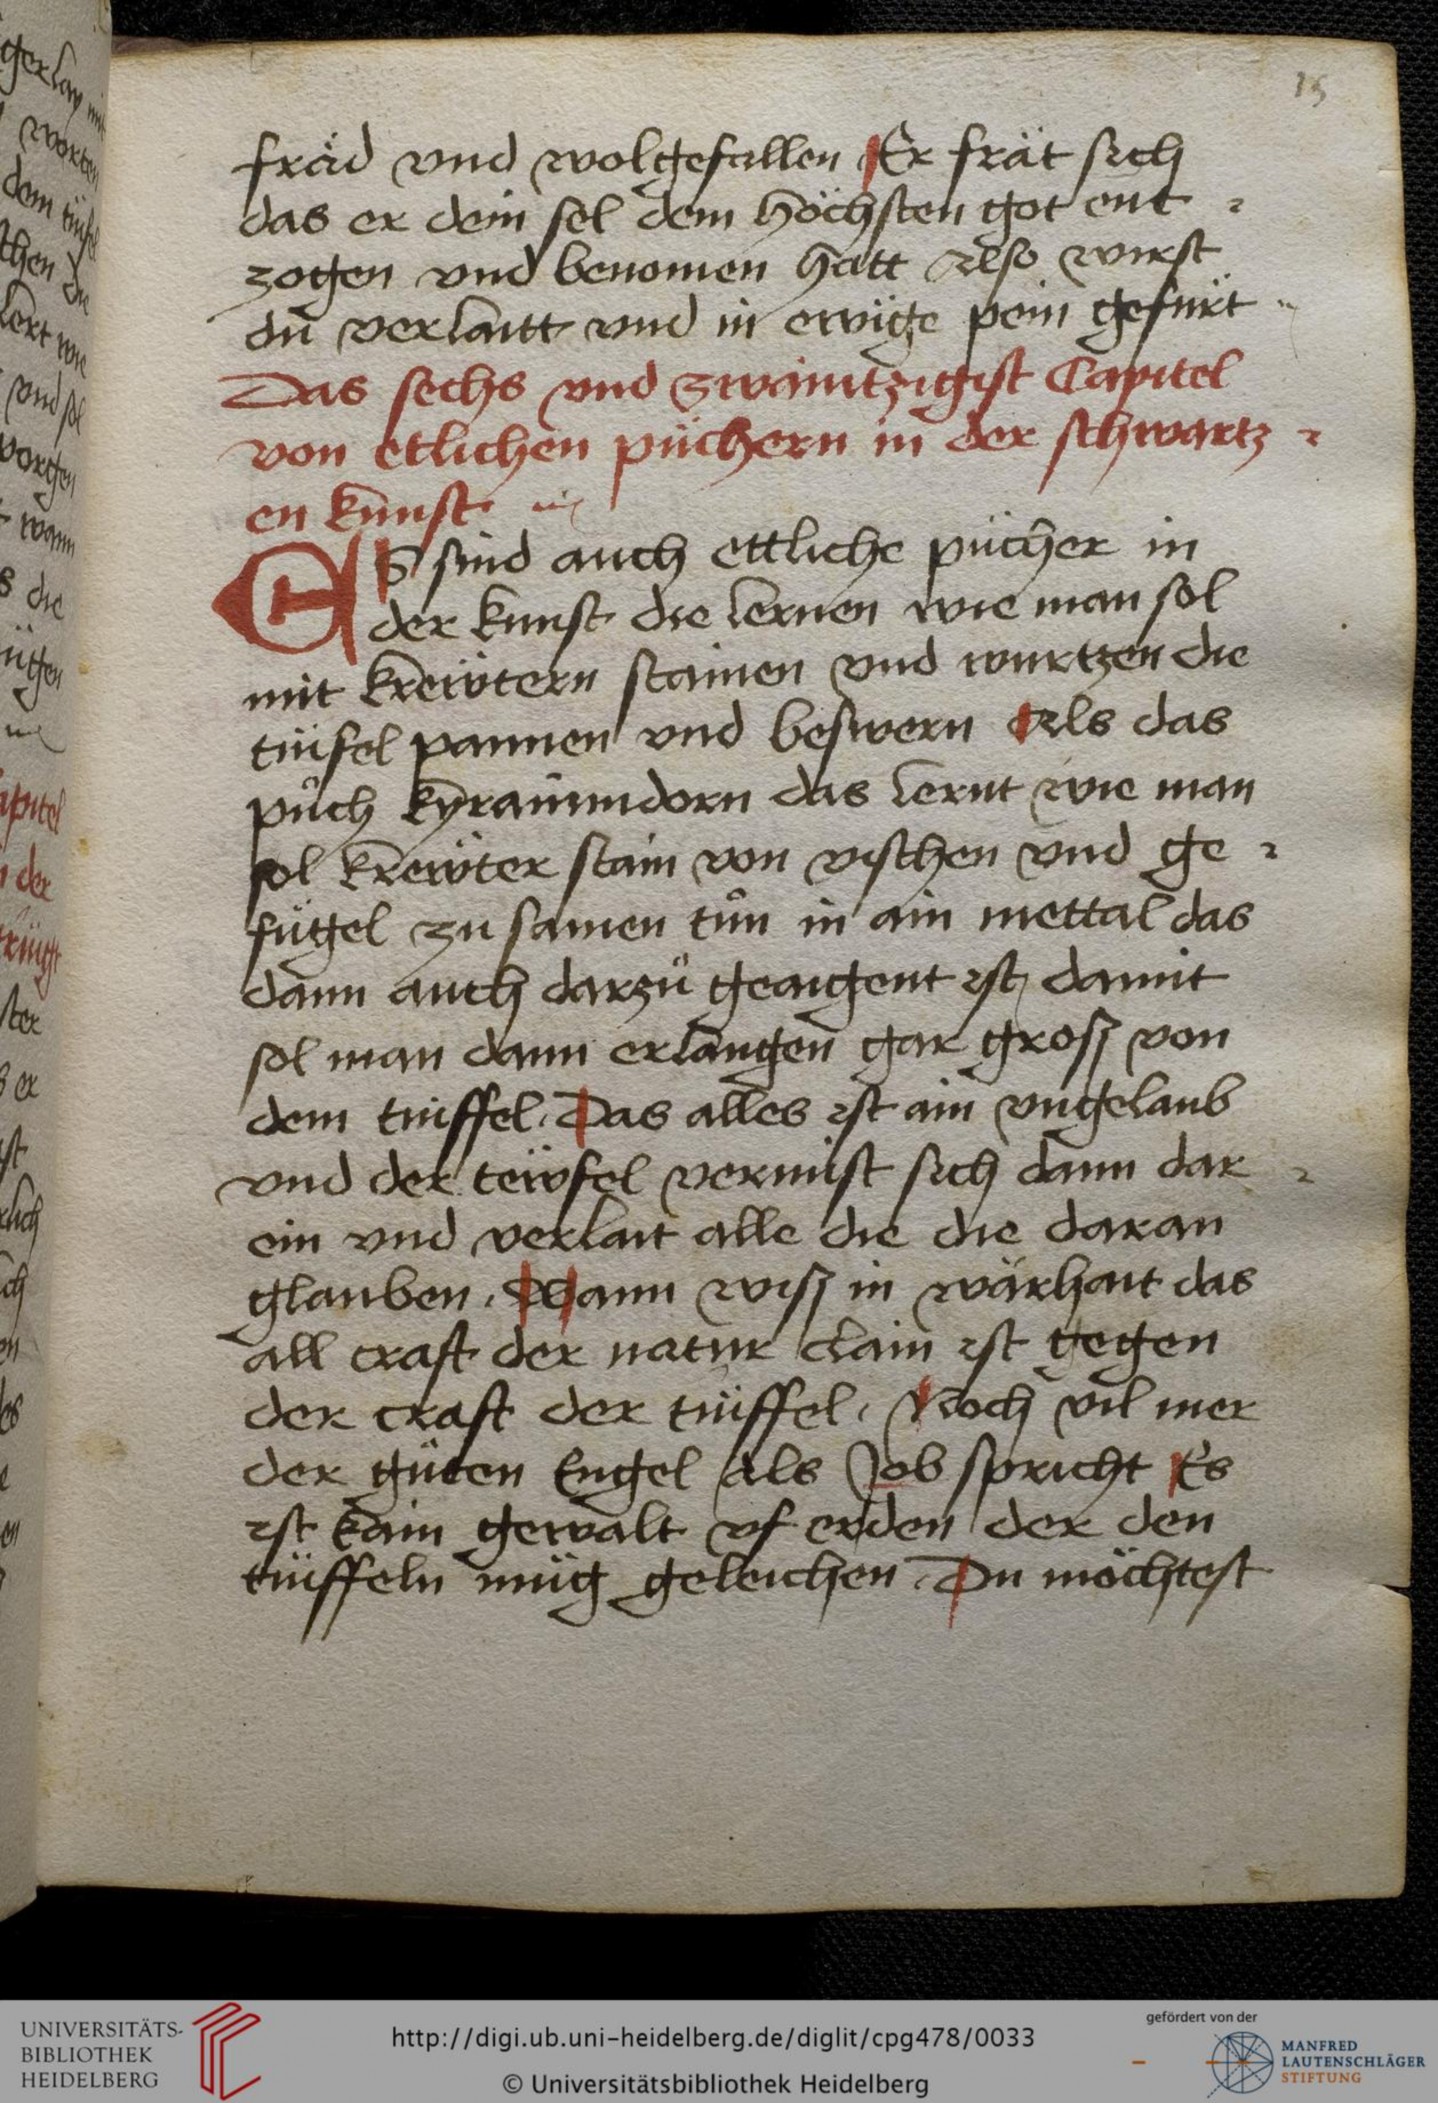 15
fräd vnd wolgefallen Er frät sich
das er dein sel dem höchsten got ent
zogen vnd benomen hatt Also wirst
du verlaitt vnd in ewige pein gefürt
Das sechs vnd zwaintzigist Capitel
von ettlichen püchern in der schwartz
en kunst
ES sind auch ettliche pücher in
der kunst die lernen wie man sol
mit krewtern stainen vnd wurtzen die
tüifel pannen vnd beswern Als das
půch kyraimmdorn das lernt wie man
sol krewter stain von vischen vnd ge
fügel zu samen tůn in ain mettal das
dann auch darzů geaigent ist damit
sol man dann erlangen gar groß von
dem tuiffel. Das alles ist ain vngelaub
vnd der tewfel vermist sich dann dar
ein vnd verlait alle die die daran
glauben. Wann wiß in wärhait das
all craft der natur clain ist gegen
der craft der tüiffel. Noch vil mer
der güten Engel Als Job spricht Es
ist kain gewalt vf erden der den
tüiffeln müg geleichen. Du möchtest
gerlay mit
worten
dem tüifel
die
lert wie
vnd sol
wann
die
der
er
UNIVERSITÄTS-
BIBLIOTHEK
HEIDELBERG
http://digi.ub.uni-heidelberg.de/diglit/cpg478/0033
© Universitätsbibliothek Heidelberg
gefördert von der
MANFRED
LAUTENSCHLÄGER
STIFTUNG